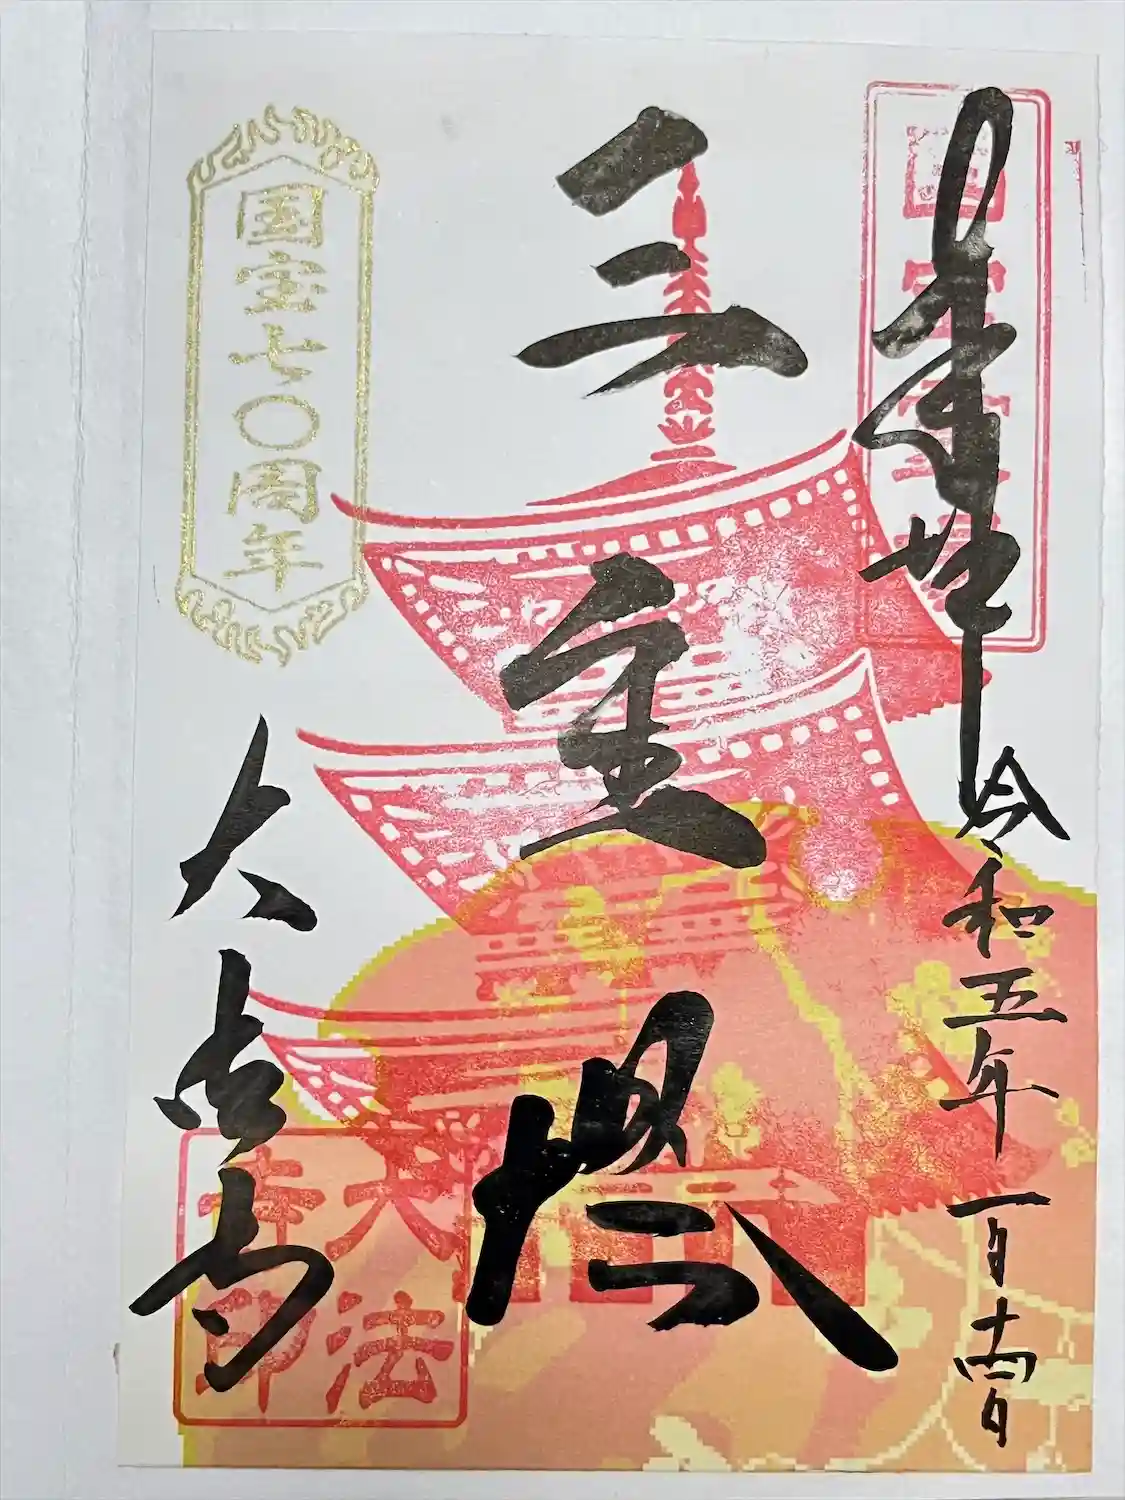 奉拝 令和五年一月十四日
三重塔
国宝七〇周年
大法寺
大法
寺印